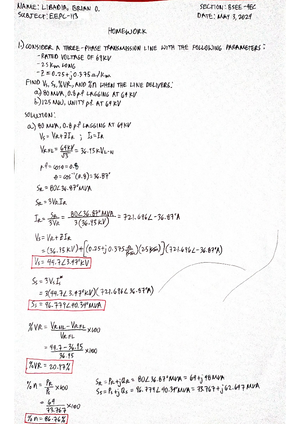 NAME: LIBADIA, BRIAN O.
SECTION: BSEE-4EC
SUBJECT: EEPC-113
DATE: MAY 3, 2024
HOMEWORK
1) CONSIDER A THREE-PHASE TRANSMISSION LINE WITH THE FOLLOWING PARAMETERS:
- RATED VOLTAGE OF 69KV
- 25km LONG
- Z = 0.25 + j0.375 Ω/km
FIND Vs, Ss, %VR, AND %n WHEN THE LINE DELIVERS:
a) 80 MVA, 0.8 pf LAGGING AT 69KV
b) 125 MW, UNITY pf AT 69KV
SOLUTION:
a) 80 MVA, 0.8 pf LAGGING AT 69KV
Vs = VR + ZIR ; Is = IR
VR FL = 69KV/√3 = 39.95KV L-N
pf = cosθ = 0.8
θ = cos⁻¹(0.8) = 36.87°
SR = 80∠36.87° MVA
SR = 3VRIR
IR = SR/3VR = 80∠-36.87° MVA/3(36.95KV) = 721.686∠-36.87° A
Vs = VR + ZIR
= (36.95KV) + [(0.25+j0.375 Ω/km)(25km)](721.686∠-36.87° A)
Vs = 44.7∠3.47° KV
Ss = 3VsI*
= 3(44.7∠3.47° KV)(721.686∠36.87° A)
Ss = 96.779∠40.34° MVA
%VR = VR NL - VR FL/VR FL x100
= 44.7 - 36.95/36.95 x100
%VR = 20.97%
%n = PR/Ps x100
SR = PR + jQR = 80∠36.87° MVA = 64 + j48 MVA
Ss = Ps + jQs = 96.779∠40.34° MVA = 73.767 + j62.647 MVA
= 64/73.767 x100
%n = 86.76%